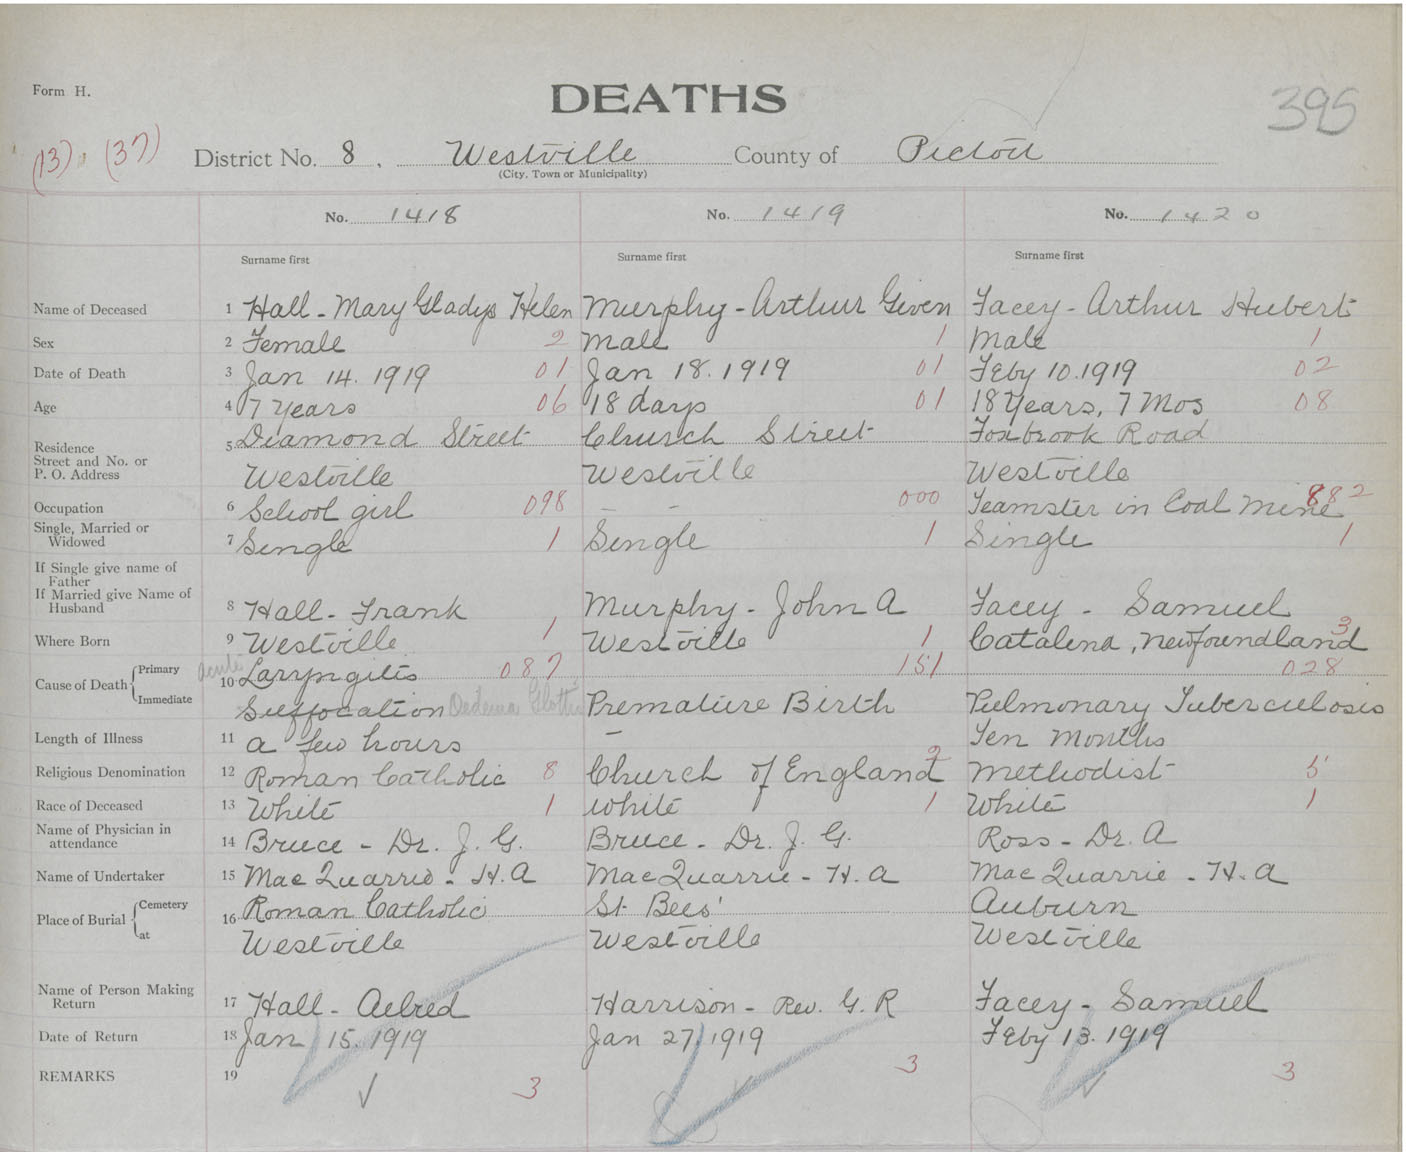 Form H.
DEATHS
395
(13) (37)
District No. 8. Westville County of Pictou
(City, Town or Municipality)
No. 1418 No. 1419 No. 1420
Surname first Surname first Surname first
Name of Deceased 1 Hall - Mary Gladys Helen Murphy - Arthur Given Facey - Arthur Hubert
Sex 2 Female 2 Male 1 Male 1
Date of Death 3 Jan 14. 1919 01 Jan 18. 1919 01 Feby 10. 1919 02
Age 4 7 Years 06 18 days 01 18 Years, 7 Mos 08
Residence 5 Diamond Street Church Street Foxbrook Road
Street and No. or
P. O. Address Westville Westville Westville
Occupation 6 School girl 098 - - 000 Teamster in Coal Mine 882
Single, Married or
Widowed 7 Single 1 Single 1 Single 1
If Single give name of
Father
If Married give Name of
Husband 8 Hall - Frank Murphy - John A Facey - Samuel
Where Born 9 Westville 1 Westville 1 Catalena, Newfoundland 3
Cause of Death Primary 10 acute Laryngitis 087 151 028
Immediate Suffocation Oedema Glottis Premature Birth Pulmonary Tuberculosis
Length of Illness 11 a few hours - Ten Months
Religious Denomination 12 Roman Catholic 8 Church of England 2 Methodist 5
Race of Deceased 13 White 1 White 1 White 1
Name of Physician in
attendance 14 Bruce - Dr. J. G. Bruce - Dr. J. G. Ross - Dr. A
Name of Undertaker 15 MacQuarrie - H. A MacQuarrie - H. A MacQuarrie - H. A
Place of Burial Cemetery 16 Roman Catholic St. Bees' Auburn
at Westville Westville Westville
Name of Person Making
Return 17 Hall - Aelred Harrison - Rev. G. R Facey - Samuel
Date of Return 18 Jan 15. 1919 Jan 27, 1919 Feby 13. 1919
REMARKS 19 3 3 3